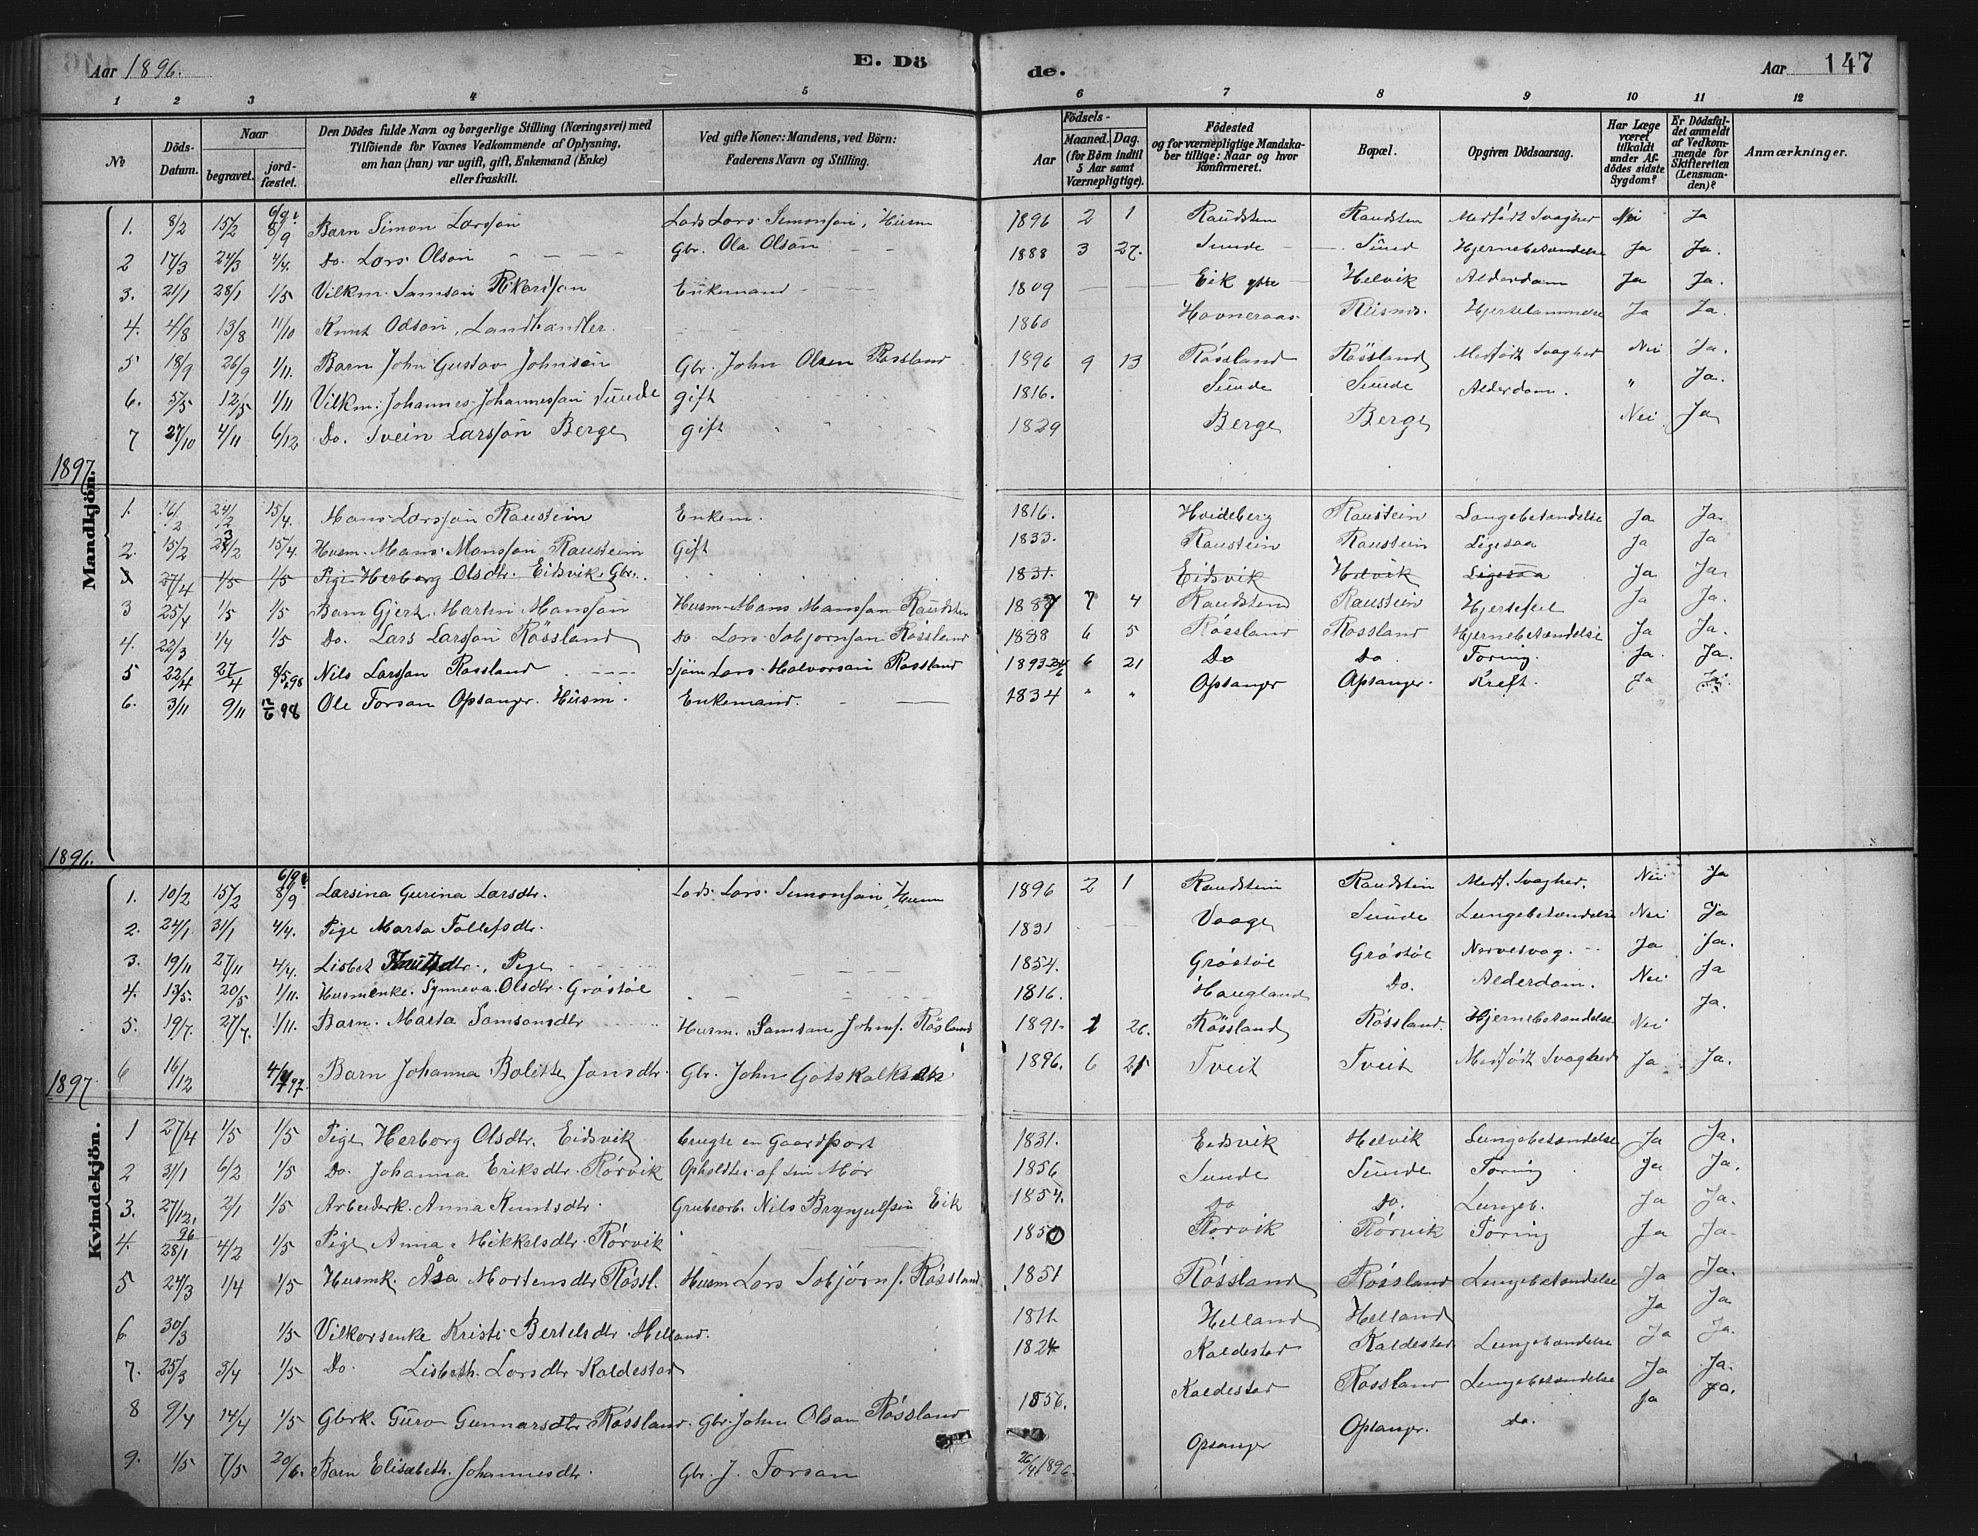 Aar 1896. E. Dö de. Aar 147
1 2 3 4 5 6 7 8 9 10 11 12
No
Döds-Datum.
Naar
begravet.
jord-fæstet.
Den Dödes fulde Navn og borgerlige Stilling (Næringsvei) med
Tilföiende for Voxnes Vedkommende af Oplysning,
om han (hun) var ugift, gift, Enkemand (Enke)
eller fraskilt.
Ved gifte Koner: Mandens, ved Börn:
Faderens Navn og Stilling.
Födsels-
Aar
Maaned. Dag.
(for Börn indtil
5 Aar samt
Værnepligtige).
Födested
og for værnepligtige Mandska-
ber tillige: Naar og hvor
konfirmeret.
Bopæl.
Opgiven Dödsaarsag.
Har Læge
været
tilkaldt
under Af-
dödes sidste
Sygdom?
Er Dödsfal-
det anmeldt
af Vedkom-
mende for
Skifteretten
(Lensman-
den)?
Anmærkninger.
Mandkjön.
1. 8/2 15/2 8/9 Barn Simon Larsson Lods Lars Simonson, Husm 1896 2 1 Raudsten Raudsten Medfödt Svaghed Nei Ja
2 17/3 24/3 4/4. Do. Lars Olson Gbr. Ola Olson 1888 3 27. Sunde Sund Hjernebetændelse Ja Ja.
3. 21/1 28/1 1/5 Vilkm. Samson Enkemand 1809 Eik ytre Helvik Alderdom Ja Ja.
4. 4/8 13/8 11/10 Knut Odson, Landhandler 1860 Hovneraas Ja Ja.
5 18/9 26/9 1/11. Barn John Gustav Johnsen Gbr. John Olsen Rossland 1896 9 13 Rössland Rössland Medfödt Svaghed Nei Ja.
6. 5/5 12/5 1/11 Vilkm. Johannes Johannesson Sunde gift 1816. Sunde Sunde Alderdom. " Ja.
7 27/10 4/11 6/12 Do. Svein Larsson Berge gift 1829 Berge Berge Nei Ja
1897.
1. 16/2 24/2 15/4. Mans Larsson Raustein Enkem. 1816. Hvideberg Raustein Lungebetændelse Ja Ja.
2. 15/2 15/4. Husm. Mans Monsson Raustein Gift 1833. Raustein Raustein Ligesaa Ja Ja
3 27/4 1/5 1/5 Pige Herborg Olsdtr. Eidsvik. Gbr. 1831. Eidsvik Helvik Ligesaa Ja Ja.
3 25/4 1/5 1/5 Barn Gjert Martin Mansson Husm. Mans Mansson Raudsten 1887 7 4 Raudstend Raustein Hjertefeil Ja Ja.
4. 22/3 1/4 1/5 Do. Lars Larsson Rössland Do Lars Sobjornson Rössland 1888 6 5 Rössland Rossland Hjernebetændelse Ja Ja.
5 22/4 27/4 8/5 98 Nils Larsson Rossland Lars Halvorson Rossland 1893 6 21 Do Do. Toring. Ja. Ja.
6. 3/11 9/11 12/6 98 Ole Torson Opsanger. Husm. Enkemand. 1834 " " Opsanger Opsanger. Kreft. Ja Ja
1896.
Kvindekjön.
1. 10/2 15/2 8/9 Larsina Gurina Larsdtr. Lods. Lars Simonson, Husm 1896 2 1 Raudstein Raudstein Medf. Svaghed. Nei Ja
2. 24/1 31/1 4/4. Pige Marta Tollefsdtr. 1831 Vaage Sunde Lungebetændelse Nei Ja
3. 19/11 27/11 4/4. Lisbet Knutsdtr., Pige 1854. Gröstöl Gröstöl Nervesvag. Ja Ja.
4. 13/5. 20/5 1/11. Husmenke. Synneva. Olsdtr. Gröstöl 1816. Haugland Do. Alderdom. Nei Ja
5. 19/7. 27/7. 1/11. Barn. Marta Samsonsdtr Husm. Samson Johnf. Rösland 1891. 1 26. Rössland Rössland. Hjernebetændelse Nei Ja.
6 16/12 4/4 97. Barn Johanna Bolitte Jonsdtr. Gbr. John Gotskalksen 1896. 6 21 Tveit Tveit Medfödt Svaghed Ja Ja.
1897
1 27/4 1/5 1/5 Pige Herborg Olsdtr. Eidsvik brugte en Gaardpart 1831. Eidsvik Helvik Lungebetændelse Ja Ja.
2 31/1 6/2 1/5 Do. Johanna Eriksdtr. Rörvik Opholdtes af sin Mor 1856 Sunde Sunde Toring Ja Ja.
3. 27/12. 96 2/1 1/5 Arbeiderk. Anna Knutsdtr. Grubearb. Nils Brynjulfsen Eik 1854. Do Do. Lungeb. Ja Ja.
4. 28/1 4/2 1/5 Pige Anna Mikkelsdtr. Rörvik 1850 Rorvik Rörvik Toring Ja Ja
5 24/3 1/4 1/5 Husmk. Åsa Mortensdtr Rössl. Husm Lars Sobjörnf. Rössland 1851 Rössland Rössland Lungebetændelse Ja Ja.
6. 30/3 1/5 Vilkorsenke Kristi Bertelsdtr. Helland. 1811. Helland Helland Ja Ja
7. 25/3 3/4 1/5 Do. Lisbeth. Larsdtr Kaldestad 1824 Kaldestad Kaldestad Lungebetændelse Ja Ja.
8 9/4 14/4 1/5 Gbrk. Guro Gunnarsdtr Rössland. Gbr. John Olson Rössland 1856. Kaldestad Rossland Lungebetændelse Ja Ja.
9. 1/5 7/5 20/6. Barn Elisabeth. Johannesdtr. Gbr. J. Torson 26/4 1896. Opsanger Opsanger. do. Ja Ja.